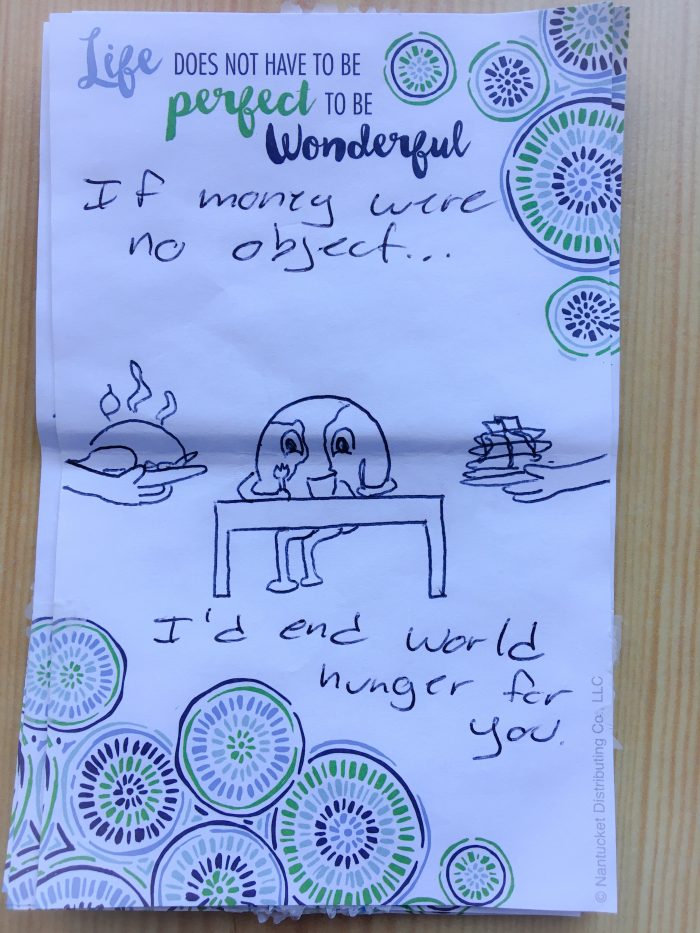 Life DOES NOT HAVE TO BE
perfect TO BE
Wonderful
If money were
no object...
I'd end world
hunger for
you.
© Nantucket Distributing Co., LLC